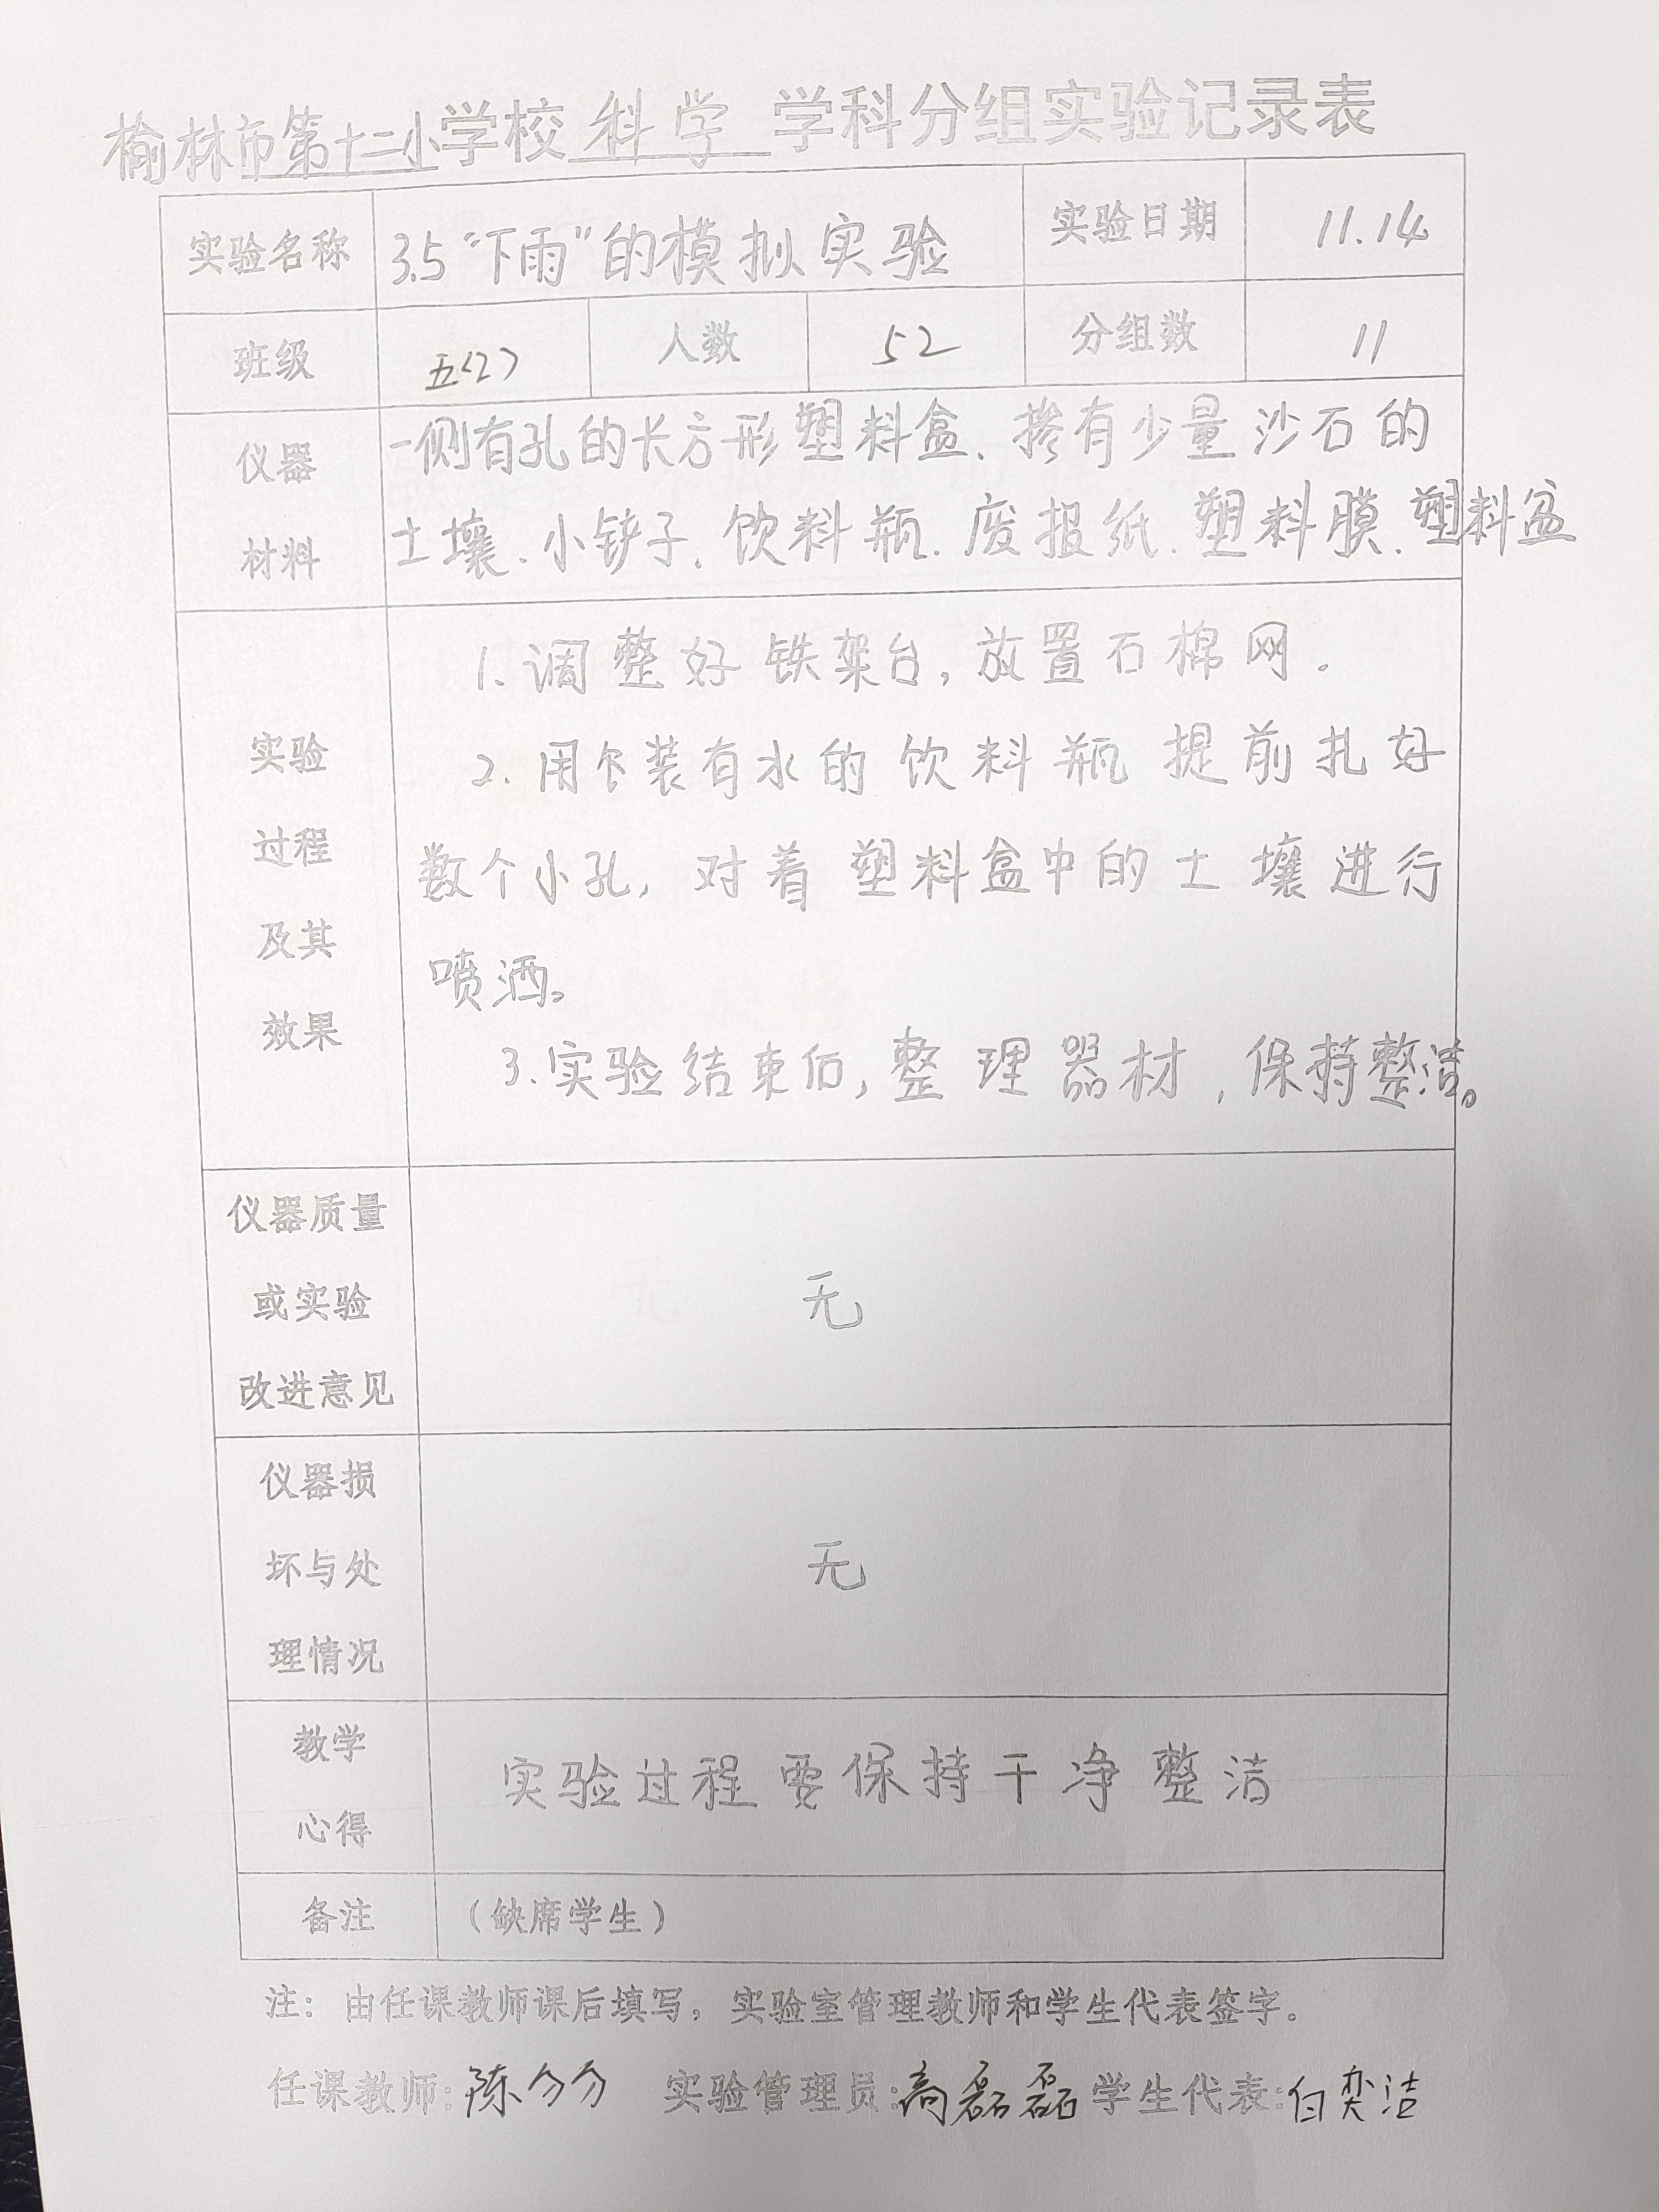 榆林市第十二小学校 科学 学科分组实验记录表
实验名称 3.5“下雨”的模拟实验 实验日期 11.14
班级 五(2) 人数 52 分组数 11
仪器
材料
一侧有孔的长方形塑料盒、掺有少量沙石的
土壤、小铲子、饮料瓶、废报纸、塑料膜、塑料盆
实验
过程
及其
效果
1、调整好铁架台,放置石棉网.
2.用装有水的饮料瓶提前扎好
数个小孔,对着塑料盒中的土壤进行
喷洒。
3.实验结束后,整理器材,保持整洁。
仪器质量
或实验
改进意见
无
仪器损
坏与处
理情况
无
教学
心得
实验过程要保持干净整洁
备注 (缺席学生)
注:由任课教师课后填写,实验室管理教师和学生代表签字。
任课教师:陈分分 实验管理员:高磊磊 学生代表:白奕洁